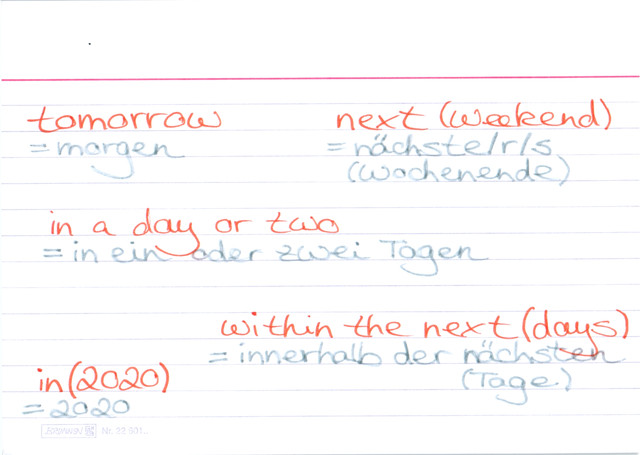 tomorrow
= morgen
next (weekend)
= nächste/r/s
(Wochenende)
in a day or two
= in ein oder zwei Tagen
within the next (days)
= innerhalb der nächsten
(Tage)
in (2020)
= 2020
Nr. 22 601